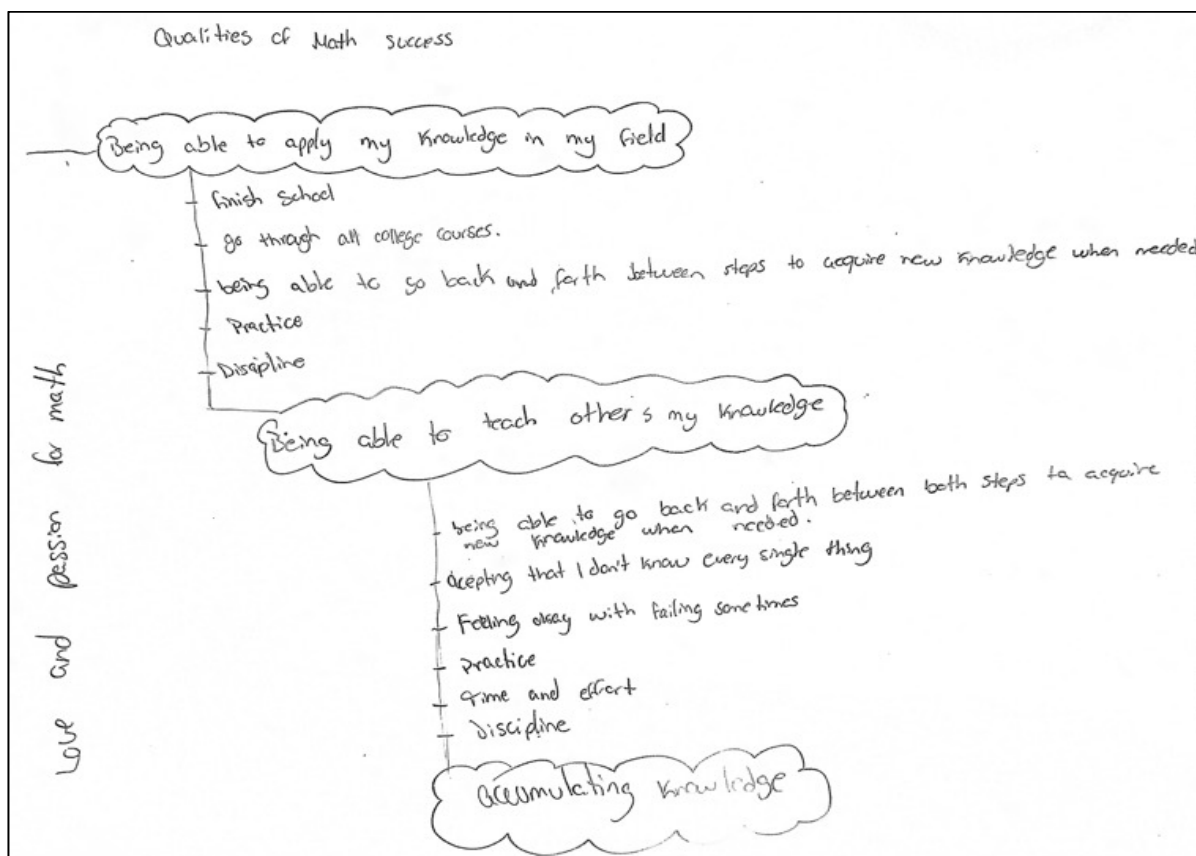 Qualities of Math success
Being able to apply my Knowledge in my field
finish school
go through all college courses.
being able to go back and forth between steps to acquire new knowledge when needed
Practice
Discipline
Being able to teach other's my Knowledge
being able to go back and forth between both steps to acquire
new knowledge when needed.
acepting that I don't know every single thing
Feeling okay with failing sometimes
practice
time and effort
discipline
accumulating knowledge
Love and passion for math